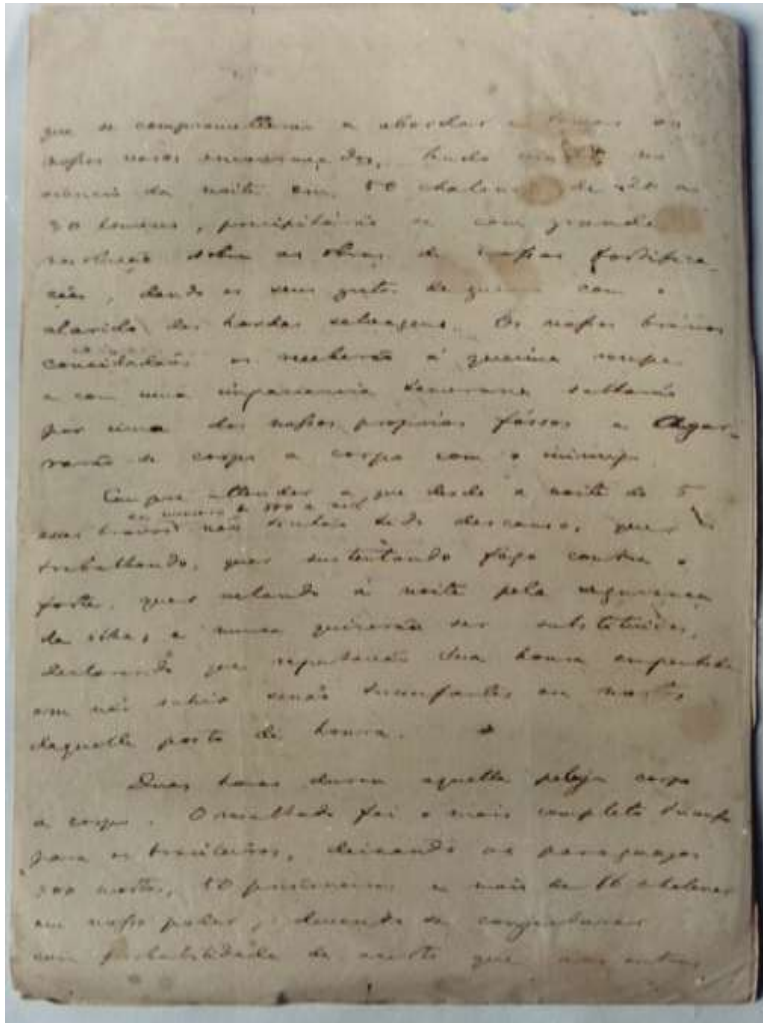 que se comprometterão a abordar e tomar os
nossos navios encouraçados,
silencio da noite em 50 chalanas de 20 a
30 homens, precipitárão se com grande
resolução sobre as obras de nossas fortifica-
ções, dando os seus gritos de guerra com o
alarido das hordas selvagens. Os nossos bravos
concidadãos os receberão á queima roupa
e com uma impaciencia temeraria saltarão
por cima dos nossos proprios fóssos e
de corpo a corpo com o inimigo.
Cumpre attender a que desde a noite de 5
em numero de 900 a mil
esses bravos não tinhão tido descanso, quer
trabalhando, quer sustentando fogo contra o
forte, quer velando á noite pela segurança
da ilha, e nunca quizerão ser substituidos,
declarando que reputavão sua honra empenhada
em não sahir senão triumfantes ou mortos
daquelle posto de honra.
Duas horas durou aquella peleja corpo
a corpo. O resultado foi o mais completo triumfo
para os brasileiros, deixando os paraguayos
500 mortos, 50 prisioneiros e mais de 16 chalanas
em nosso poder, devendo se conjecturar
com probabilidade de acerto que nas outras